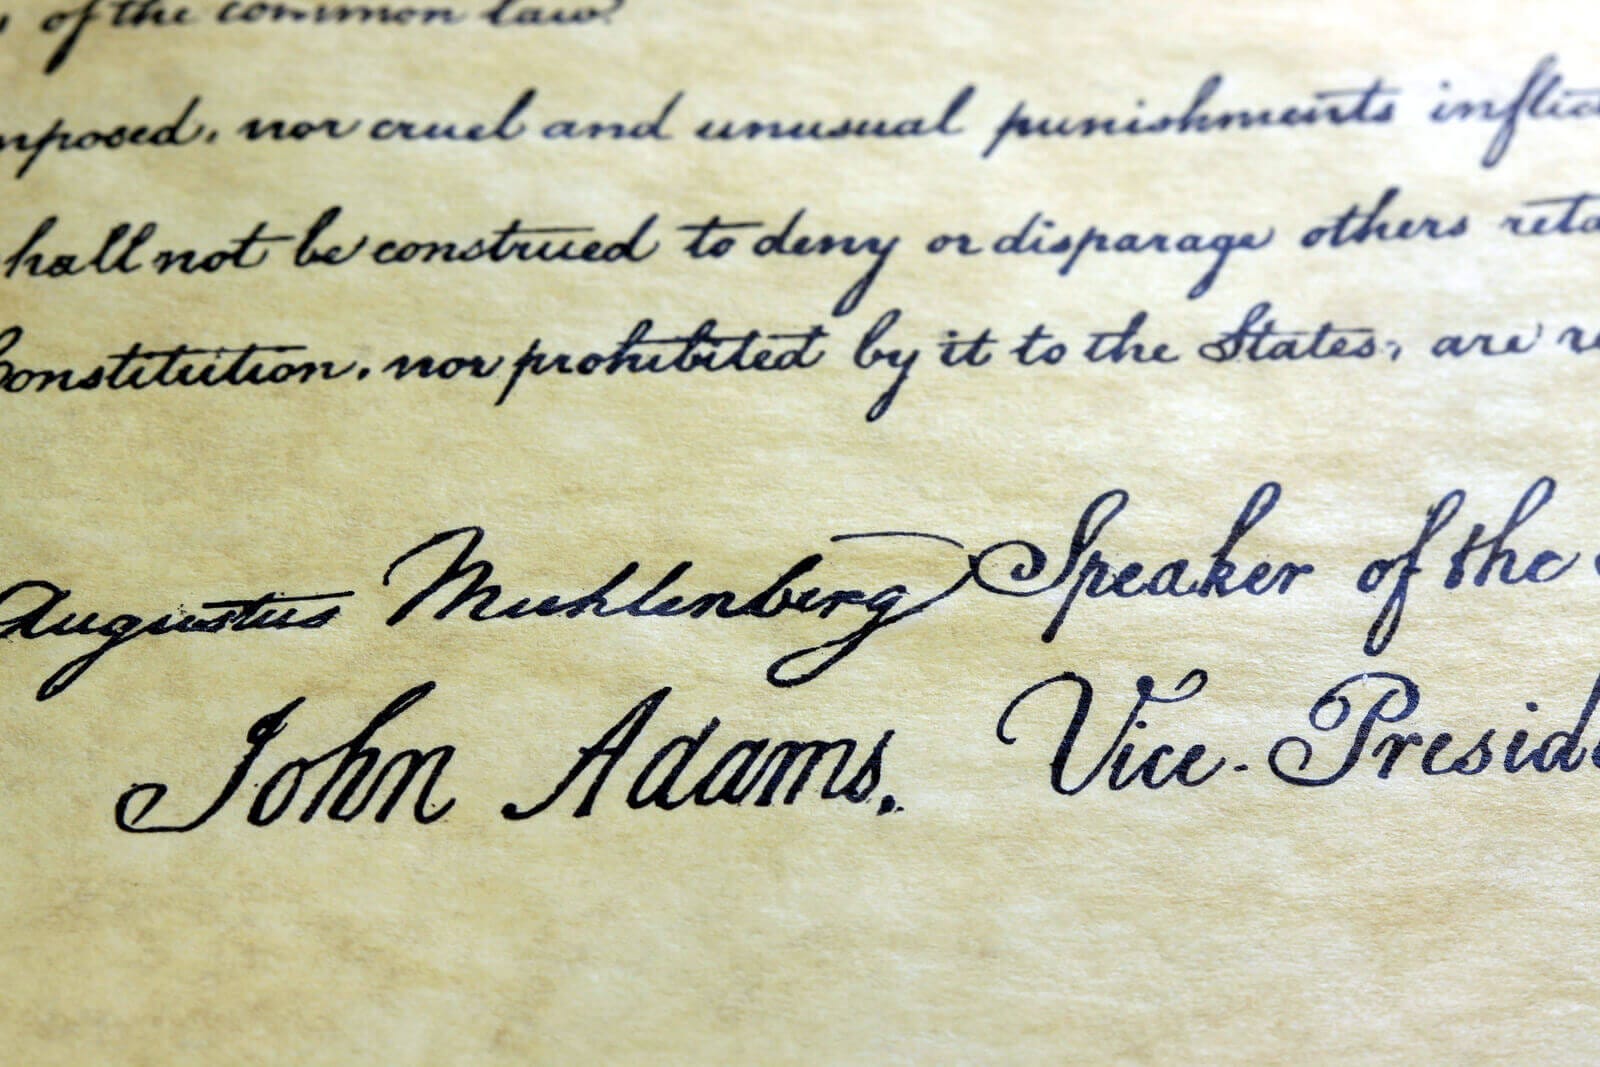 of the common law.
mposed, nor cruel and unusual punishments inflic
hall not be construed to deny or disparage others reta
Constitution, nor prohibited by it to the States, are re
Augustus Muhlenberg Speaker of the
John Adams, Vice-Preside